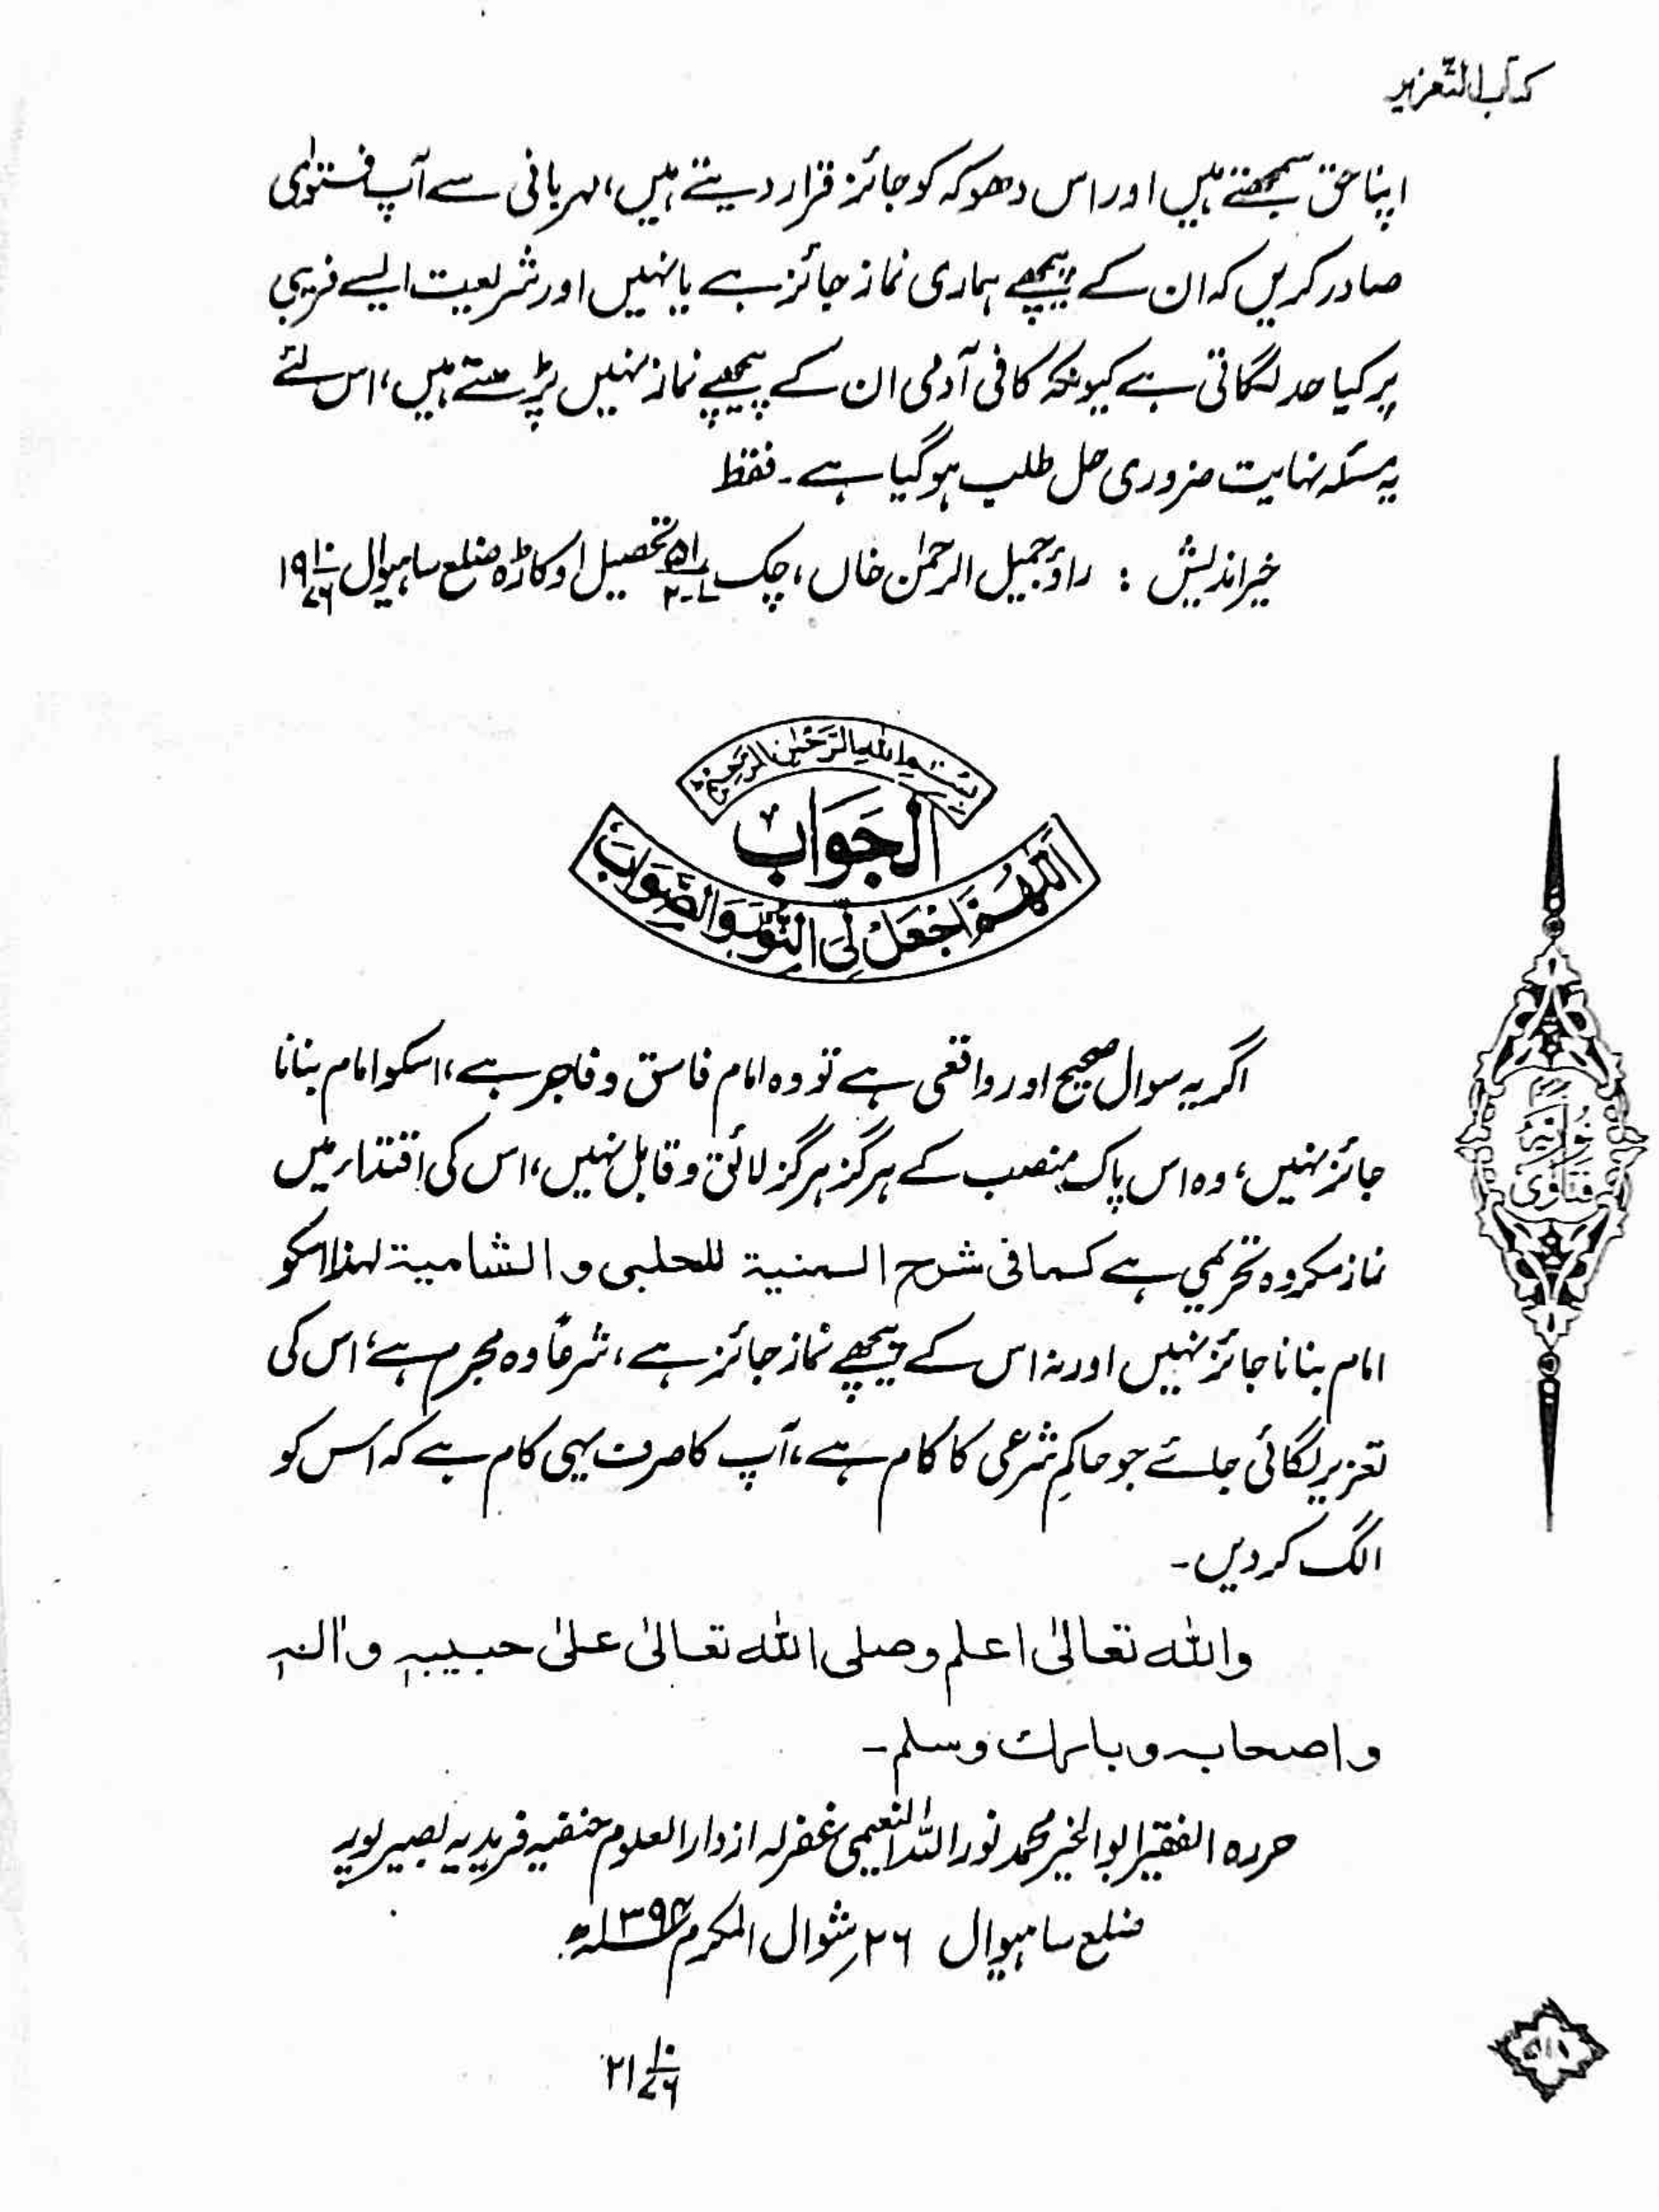 کتاب التعزیر
اپنا حق سمجھتے ہیں اور اس دھوکہ کو جائز قرار دیتے ہیں، مہربانی سے آپ فتوٰی
صادر کریں کہ ان کے پیچھے ہماری نماز جائز ہے یا نہیں اور شریعت ایسے فریبی
پر کیا حد لگاتی ہے کیونکہ کافی آدمی ان کے پیچھے نماز نہیں پڑھتے ہیں، اس لئے
یہ مسئلہ نہایت ضروری حل طلب ہو گیا ہے۔ فقط
خیر اندیش : راؤ جمیل الرحمٰن خاں، چک ۵۱/۲-L تحصیل اوکاڑہ ضلع ساہیوال ۱۹ ۱۰/۷۶
بِسْمِ اللهِ الرَّحْمٰنِ الرَّحِيْمِ
الجَوَابُ
اَللّٰهُمَّ اجْعَلْ لِّيَ النُّوْرَ وَالصَّوَابَ
اگر یہ سوال صحیح اور واقعی ہے تو وہ امام فاسق و فاجر ہے، اسکو امام بنانا
جائز نہیں، وہ اس پاک منصب کے ہرگز ہرگز لائق و قابل نہیں، اس کی اقتدار میں
نماز مکروہ تحریمی ہے کما فی شرح المنیة للحلبی و الشامیة لہذا اسکو
امام بنانا جائز نہیں اور نہ اس کے پیچھے نماز جائز ہے، شرعًا وہ مجرم ہے، اس کی
تعزیر لگائی جائے جو حاکمِ شرعی کا کام ہے، آپ کا صرف یہی کام ہے کہ اس کو
الگ کر دیں۔
والله تعالیٰ اعلم وصلی الله تعالیٰ علیٰ حبیبہٖ واٰلہٖ
واصحابہ وبارك وسلم۔
حررہ الفقیر ابو الخیر محمد نور اللہ النعیمی غفرلہ از دارالعلوم حنفیہ فریدیہ بصیر پور
ضلع ساہیوال ۲۶ شوال المکرم ۱۳۹۶ھ
۲۱ ۱۰/۷۶
فتاوٰی نوریہ